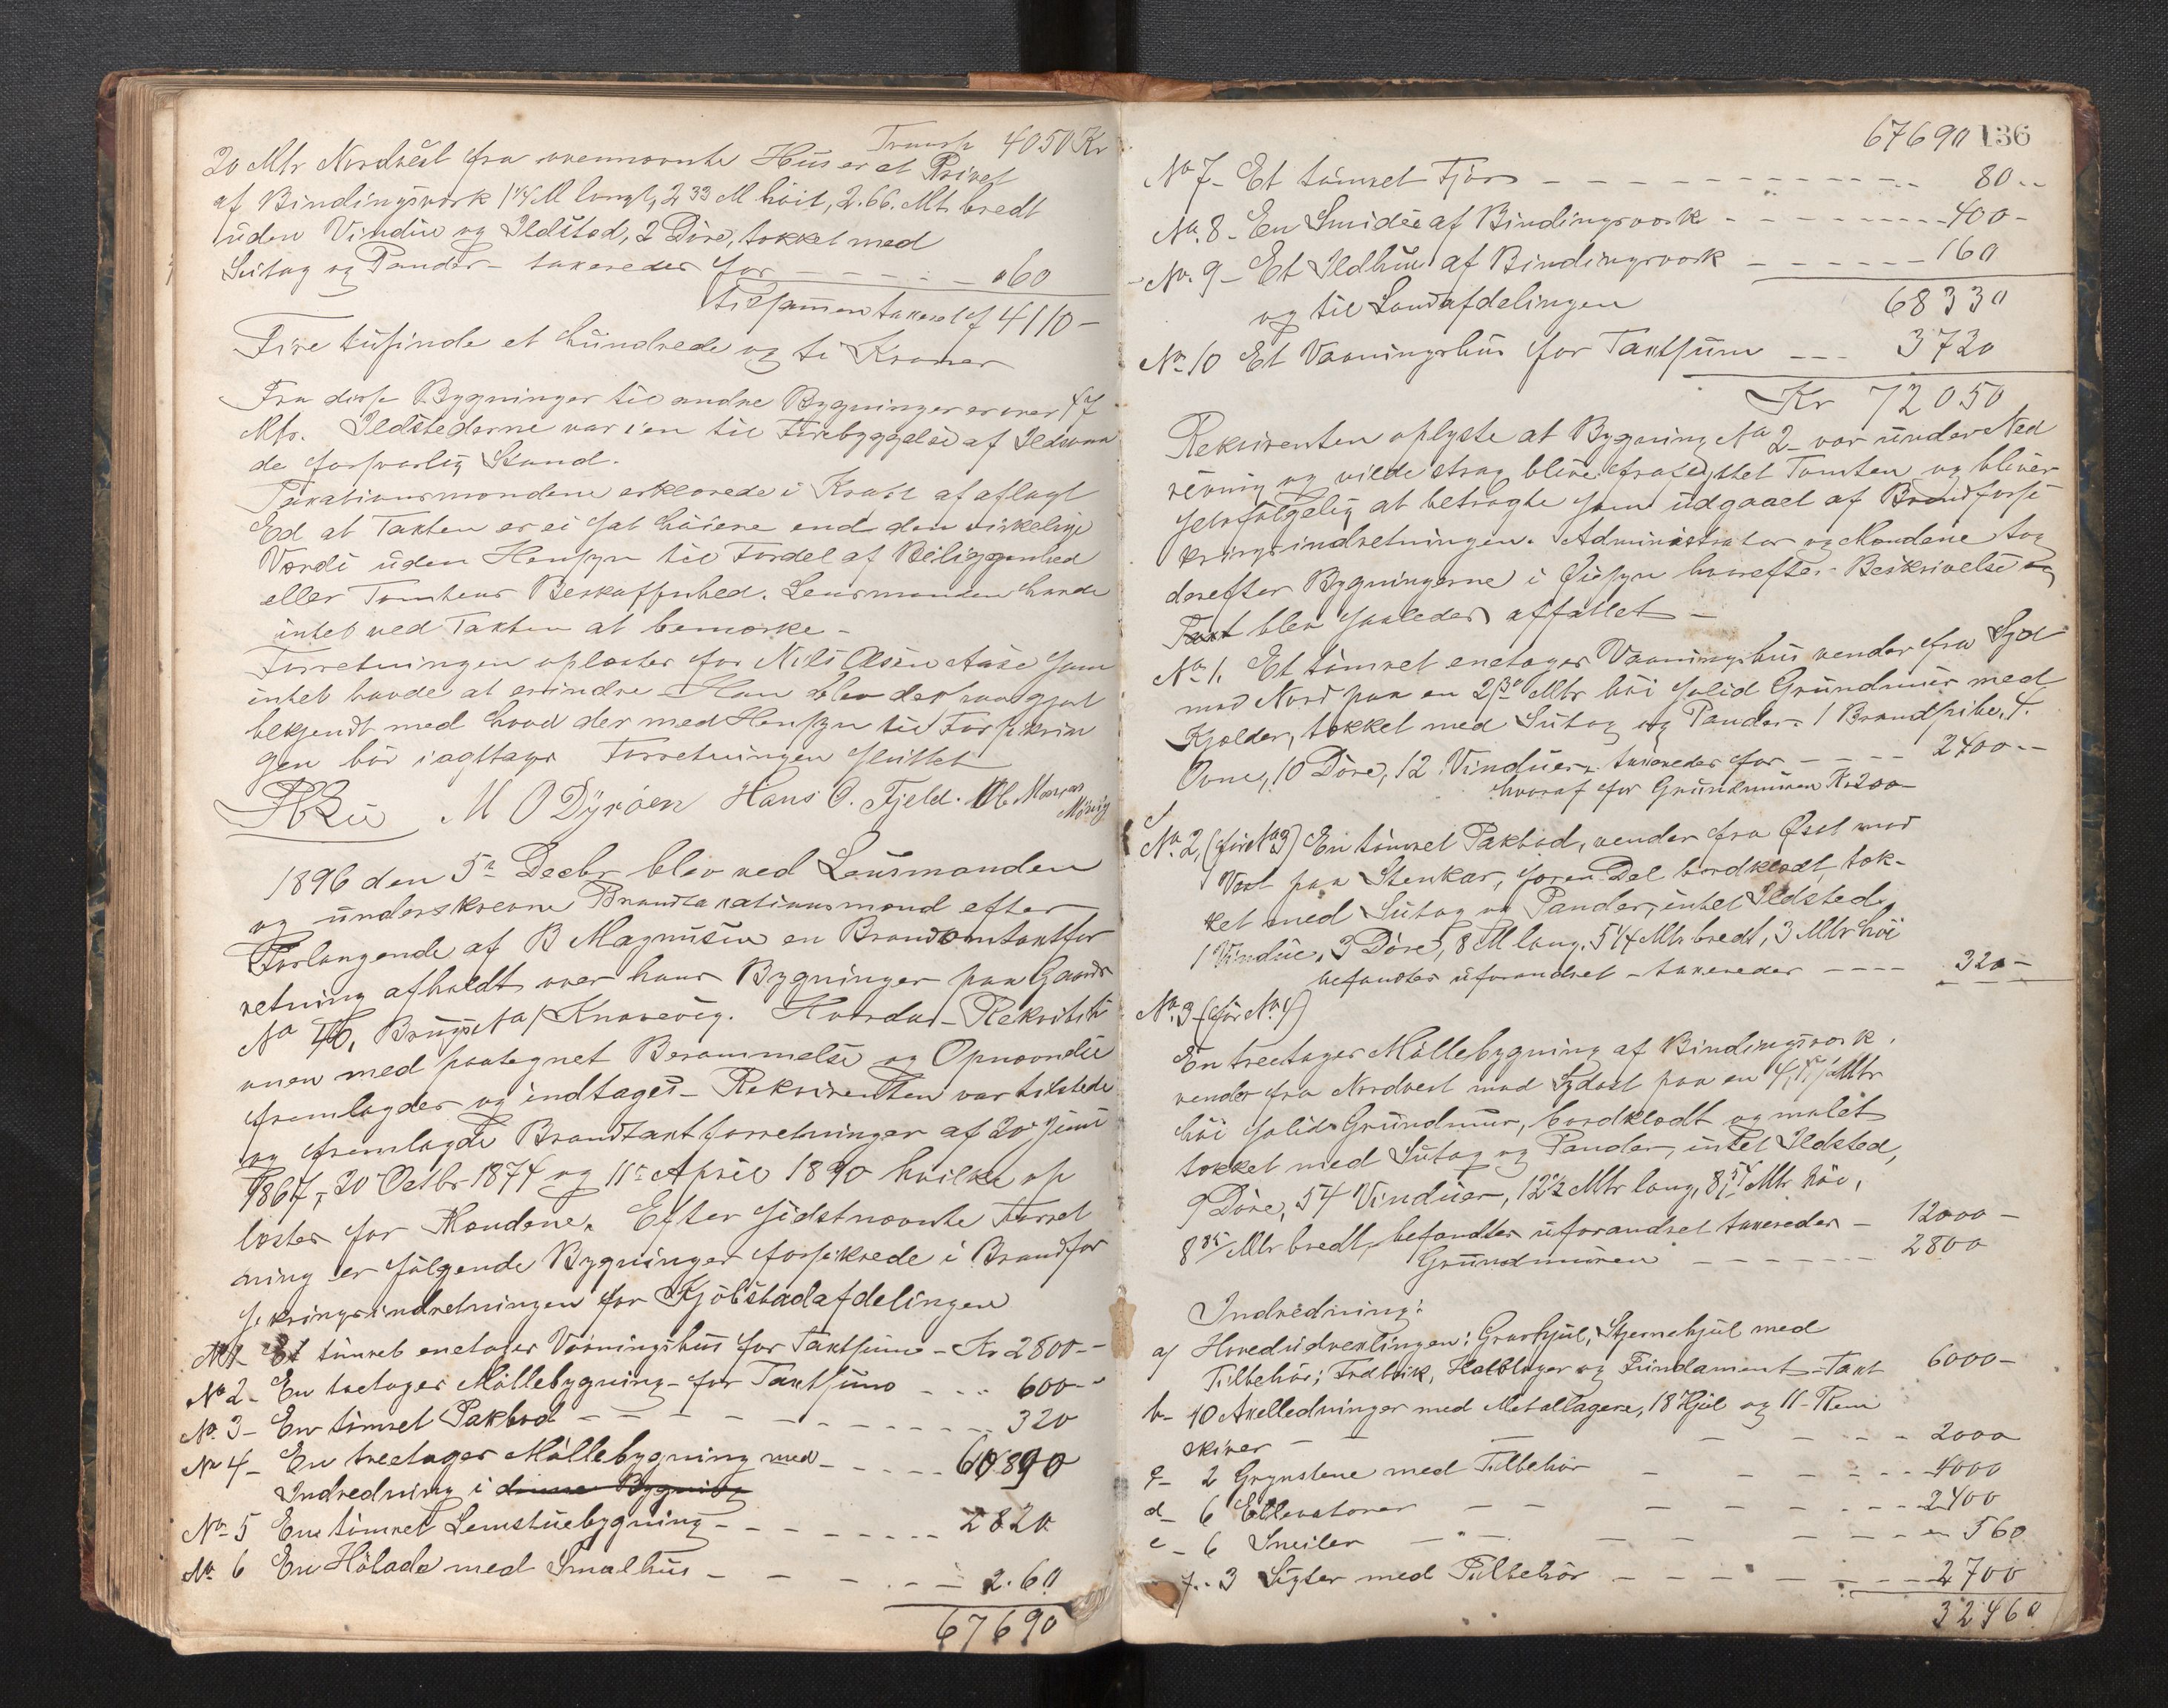 Transp 4050 Kr
20 Mtr Nordvest fra ovennævnte Hus er et Privet
af Bindingsværk 1¼ M langt, 2 33 M höit, 2.66. Mtr bredt
uden Vindue og Ildsted, 2 Döre, tækket med
Sutag og Pander - taxeredes for - - - - - 60
tilsammen taxeret f 4110 -
Fire tusinde et hundrede og ti Kroner
Fra disse Bygninger til andre Bygninger er over 47
Mtr. Ildstederne var i en til Forebyggelse af Ildsvaa
de forsvarlig Stand.
Taxationsmændene erklærede i Kraft af aflagt
Ed at Taxten er ei sat höiere end den virkelige
Værdi uden Hensyn til Fordel af Beliggenhed
eller Tomtens Beskaffenhed. Lensmanden havde
intet ved Taxten at bemærke -
Forretningen oplæstes for Nils Olsen Aase som
intet havde at erindre - Han blev derhaos gjort
bekjendt med hvad der med Hensyn til Forsikrin
gen bör iagttages Forretningen sluttet
M O Dyröen Hans O. Fjeld.
1896 den 5te Decbr blev ved Lensmanden
og underskrevne Brandtaxationsmænd efter
Forlangende af B Magnusen en Brandomtaxtfor
retning afholdt over hans Bygninger paa Gaards
No 46, Brugs No 1 Knarevig. Hvorda - Rekvisiti
onen med paategnet Berammelse og Opnævnelse
fremlagdes og indtages - Rekvirenten var tilstede
og fremlagde Brandtaxtforretninger af 20de Juni
1867, 20 Octbr 1874 og 11te April 1890 hvilke op
læstes for Mændene. Efter sidstnævnte Forret
ning er fölgende Bygninger forsikrede i Brandfor
sikringsindretningen for Kjöbstadafdelingen
No 1 - Et tömret enetages Vaaningshus for Taxtsum - Kr 2800 -
No 2 - En toetages Möllebygning - for Taxtsum - - - 600 -
No. 3 - En tömret Pakbod - - - - - - - - 320
No 4 - En treetages Möllebygning med - - - - - 60890
Indredning i denne Bygning
No 5 En tömret Lemstuebygning - - - - - - - 2820
No 6 En Hölade med Smalhus - - - - - - 260
67690
67690 136
No 7 - Et tömret Fjös - - - - - - - - - - - - 80 -
No. 8 - En Smidie af Bindingsværk - - - - - - - - 400 -
No. 9 - Et Ildhus af Bindingsværk - - - - - - 160
og til Landafdelingen 68330
No 10 Et Vaaningshus for Taxtsum - - - 3720
Kr 72050
Rekvirenten oplyste at Bygning No 2 - var under Ned
rivning og vilde strax blive fraflyttet Tomten og bliver
selvfölgelig at betragte som udgaaet af Brandforsi
kringsindretningen. Administrator og Mændene tog
derefter Bygningerne i Öiesyn hvorefter Beskrivelse og
Taxt blev saaledes affattet -
No 1. Et tömret enetages Vaaningshus vender fra Syd
mod Nord paa en 2 30 Mtr höi solid Grundmur med
Kjelder, tækket med Sutag og Pander. 1 Brandpibe, 4.
Ovne, 10 Döre, 12 Vinduer, taxeredes for - - - - 2400 -
hvoraf for Grundmuren Kr 200 -
No. 2, (för No 3) En tömret Pakbod, vender fra Öst mod
Vest paa Stenkar, for en Del bordklædt, tæk-
ket med Sutag og Pander, intet Ildsted,
1 Vindue, 3 Döre, 8 M lang. 5 1/4 Mtr bredt, 3 Mtr höi
befandtes uforandret - taxeredes - - - - 320 -
No. 3 - (för No. 4)
En treetages Möllebygning af Bindingsværk,
vender fra Nordvest mod Sydost paa en Mtr
höi solid Grundmur, bordklædt og malet
tækket med Sutag og Pander, intet Ildsted,
9 Döre, 54 Vinduer, 12½ Mtr lang, 8,54 Mtr höi,
8 85 Mtr bredt, befandtes uforandret taxeredes - 12000 -
Grundmuren - - - - - - - 2800
Indredning:
a) Hovedudvexlingen: Gravhjul, Stjernehjul med
Tilbehör; Fodblik, Halslager og Fundament - Taxt 6000 -
b - 10 Axelledninger med Metallagere, 18 Hjul og 11 - Rem
skiver - - - - - - 2000
c - 2 Grynstene med Tilbehör - - - - - 4000
d - 6 Ellevatorer - - - - - - - - 2400
e - 6 Sneiler - - - - - - - 560
f. - 3 Sigter med Tilbehör - - - - - - 2700
32460